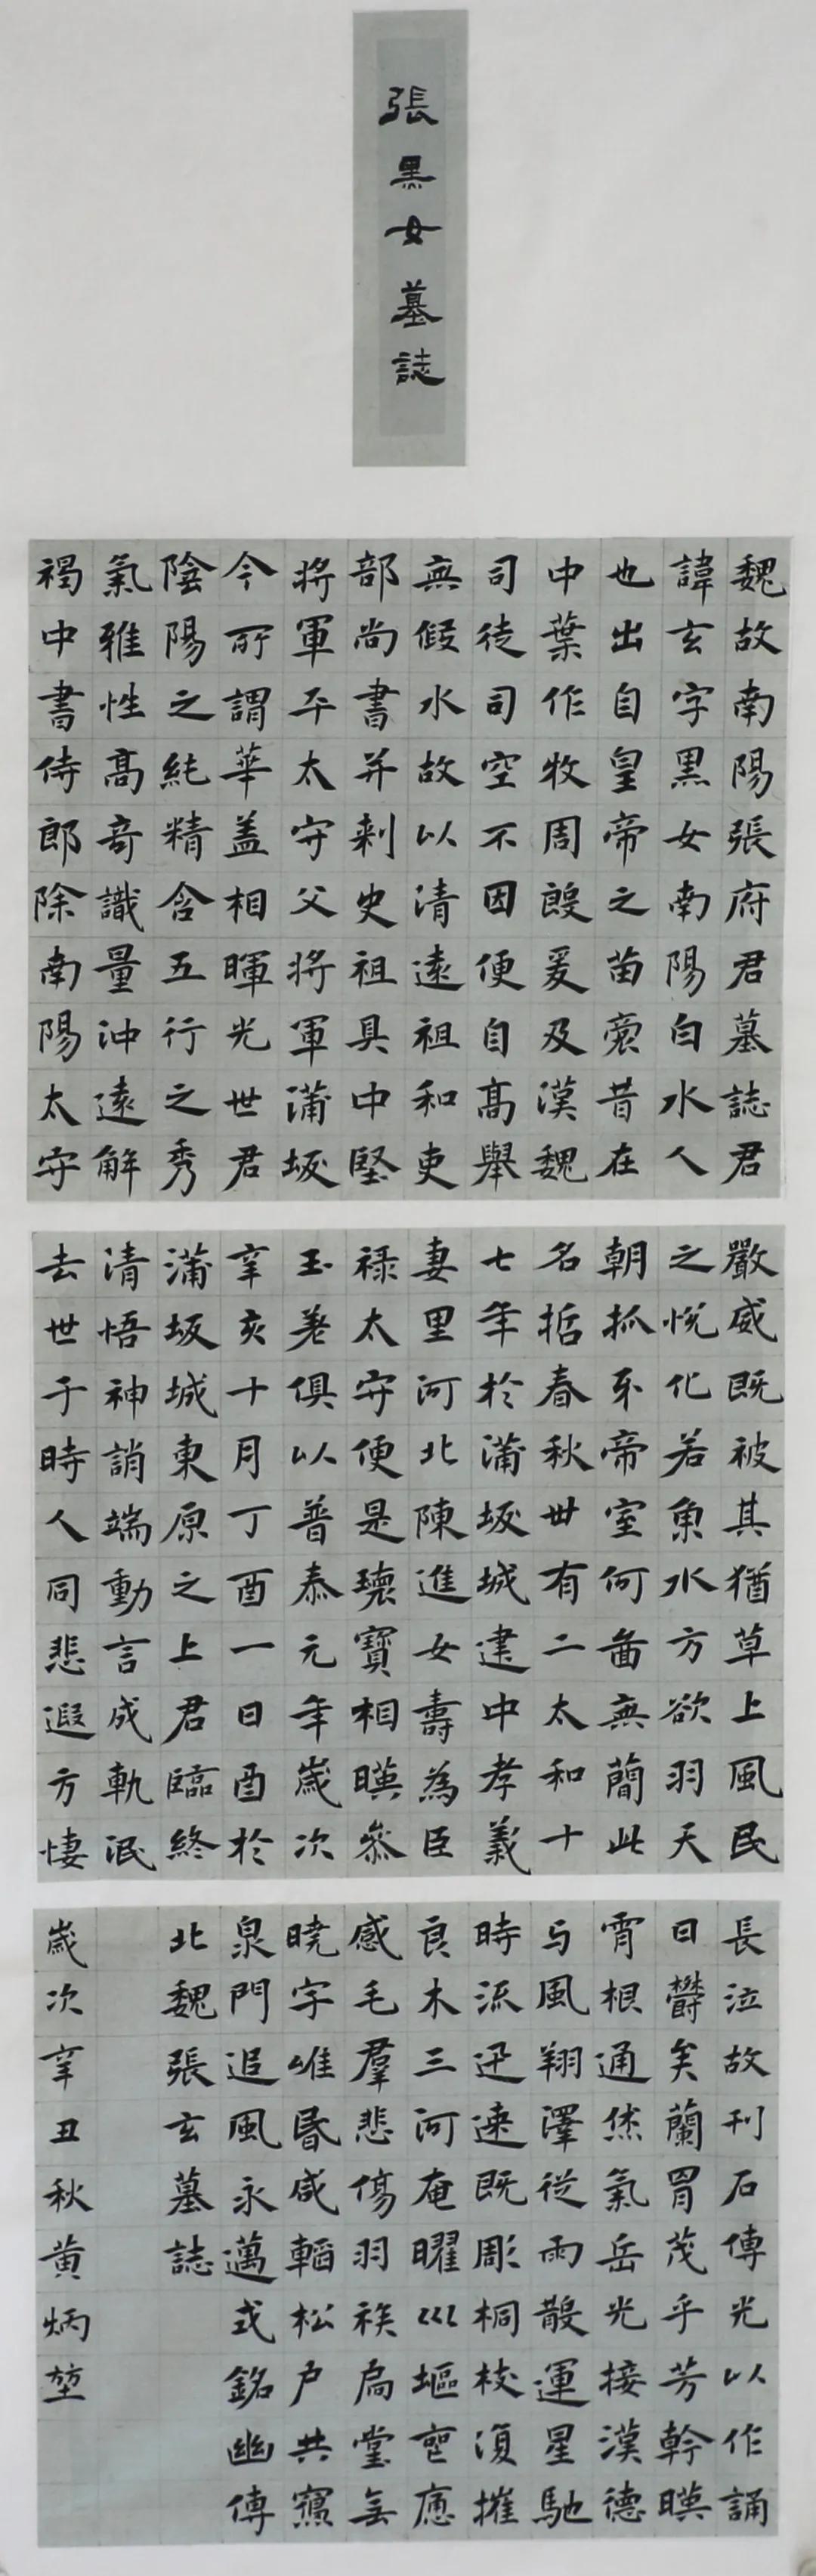 張黑女墓誌
魏故南陽張府君墓誌君
諱玄字黑女南陽白水人
也出自皇帝之苗裔昔在
中葉作牧周殷爰及漢魏
司徒司空不因便自高舉
無假水故以清遠祖和吏
部尚書并刺史祖具中堅
將軍平太守父將軍蒲坂
今所謂華盖相暉光世君
陰陽之純精含五行之秀
氣雅性高奇識量沖遠解
褐中書侍郎除南陽太守
嚴威既被其猶草上風民
之悅化若魚水方欲羽天
朝抓牙帝室何啚無簡此
名哲春秋卅有二太和十
七年於蒲坂城建中孝義
妻里河北陳進女壽為臣
祿太守便是瓌寶相暎參
玉羌俱以普泰元年歲次
辛亥十月丁酉一日酉於
蒲坂城東原之上君臨終
清悟神誚端動言成軌泯
去世于時人同悲遐方悽
長泣故刊石傳光以作誦
曰鬱矣蘭胃茂乎芳幹暎
霄根通烋氣岳光接漢德
与風翔澤從雨散運星馳
時流迅速既彫桐枝復摧
良木三河奄曜巛堰奄應
感毛羣悲傷羽族扃堂無
曉字唯昏咸韜松户共寱
泉門追風永邁式銘幽傳
北魏張玄墓誌
歲次辛丑秋黄炳堃